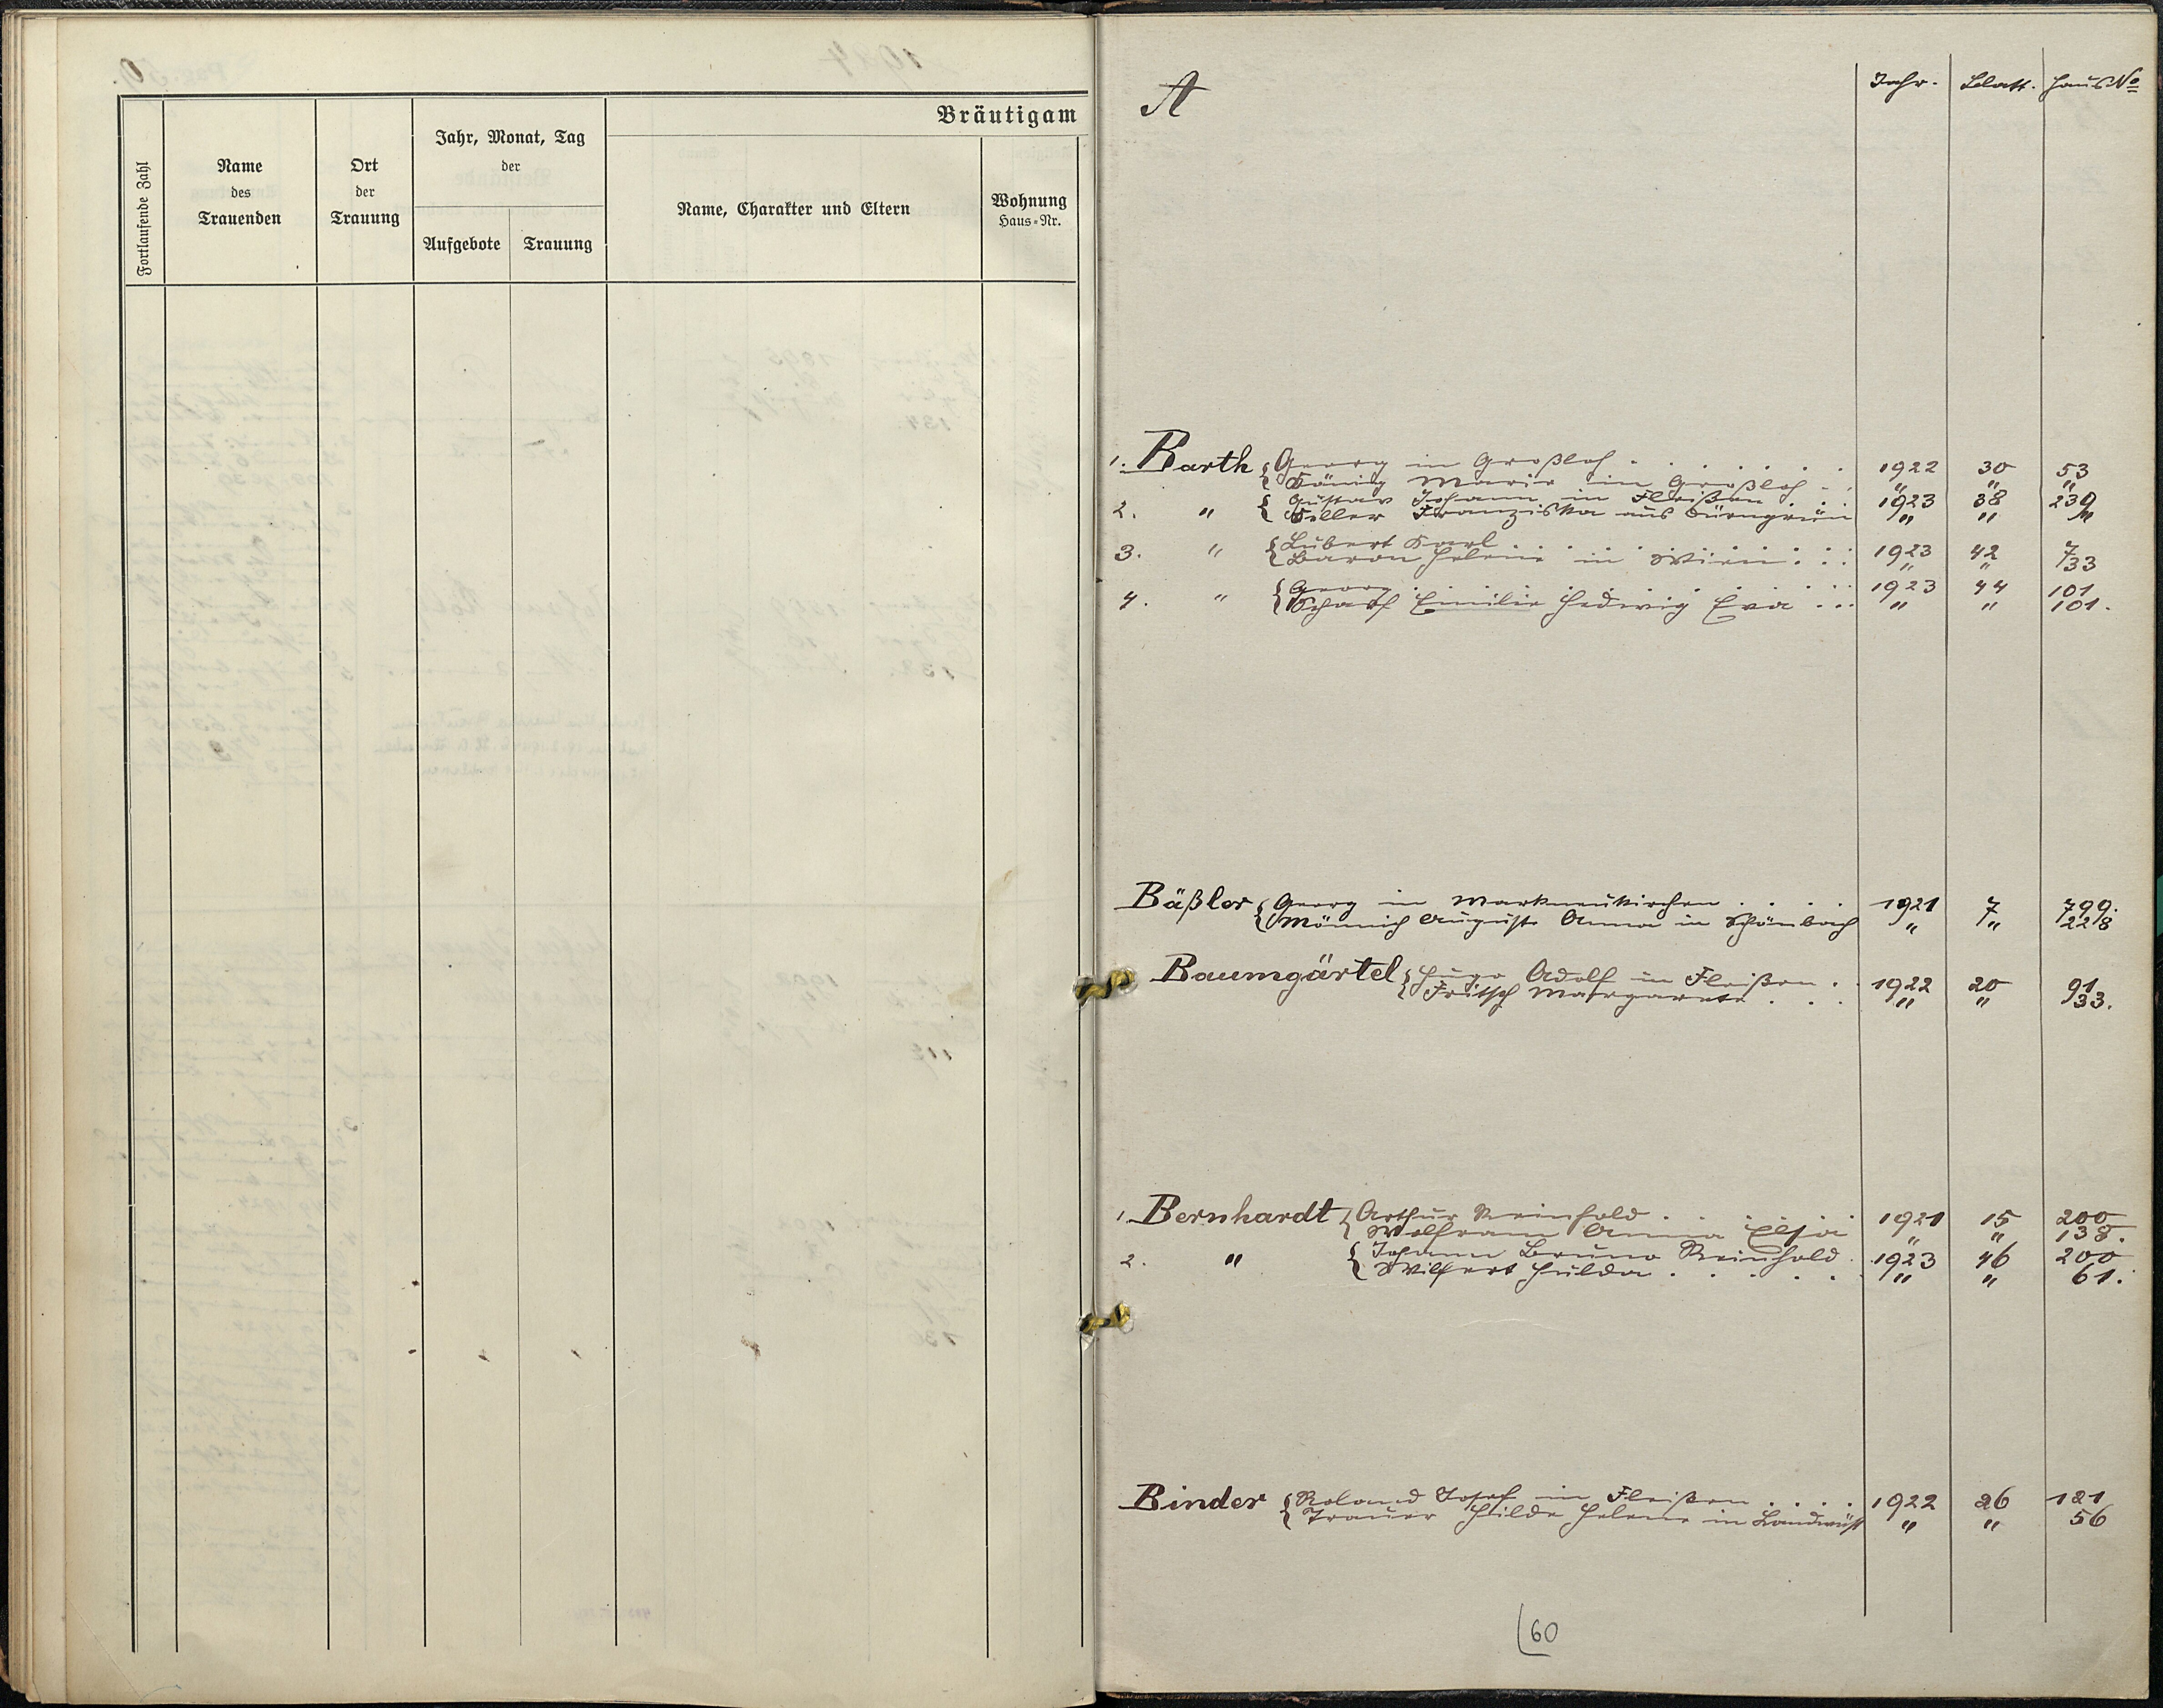 Fortlaufende Zahl
Name
des
Trauenden
Ort
der
Trauung
Jahr, Monat, Tag
der
Aufgebote
Trauung
Bräutigam
Name, Charakter und Eltern
Wohnung
Haus-Nr.
A
Jahr. Blatt. Haus No
1. Barth { Georg in Großloh . . . . . . . 1922 30 53
König Marie in Großloh . . " " "
2. " { Gustav Johann in Fleißen . . . 1923 38 239
Keller Franziska aus Dürngrün " " "
3. " { Lubert Karl . . . . . . . . 1923 42 7
Baron Helene in Wien . . . " " 33
4. " { Georg . . . . . . . . . 1923 44 101
Scharf Emilie Hedwig Eva . . . " " 101.
Bäßler { Georg in Markneukirchen . . . . 1921 7 799.
Mönnich Auguste Anna in Schönbach " " 228
Baumgärtel { Hugo Adolf in Fleißen . . 1922 20 91
Fritsch Margarete . . . " " 33.
1. Bernhardt { Arthur Reinhold . . . . . 1921 15 200
Wolfram Anna Elsa " " 138.
2. " { Johann Bruno Reinhold . 1923 46 200
Wilfert Hulda . . . . . " " 61.
Binder { Roland Josef in Fleißen . . . . 1922 26 121
Trauer Hilde Helene in Landwüst " " 56
60